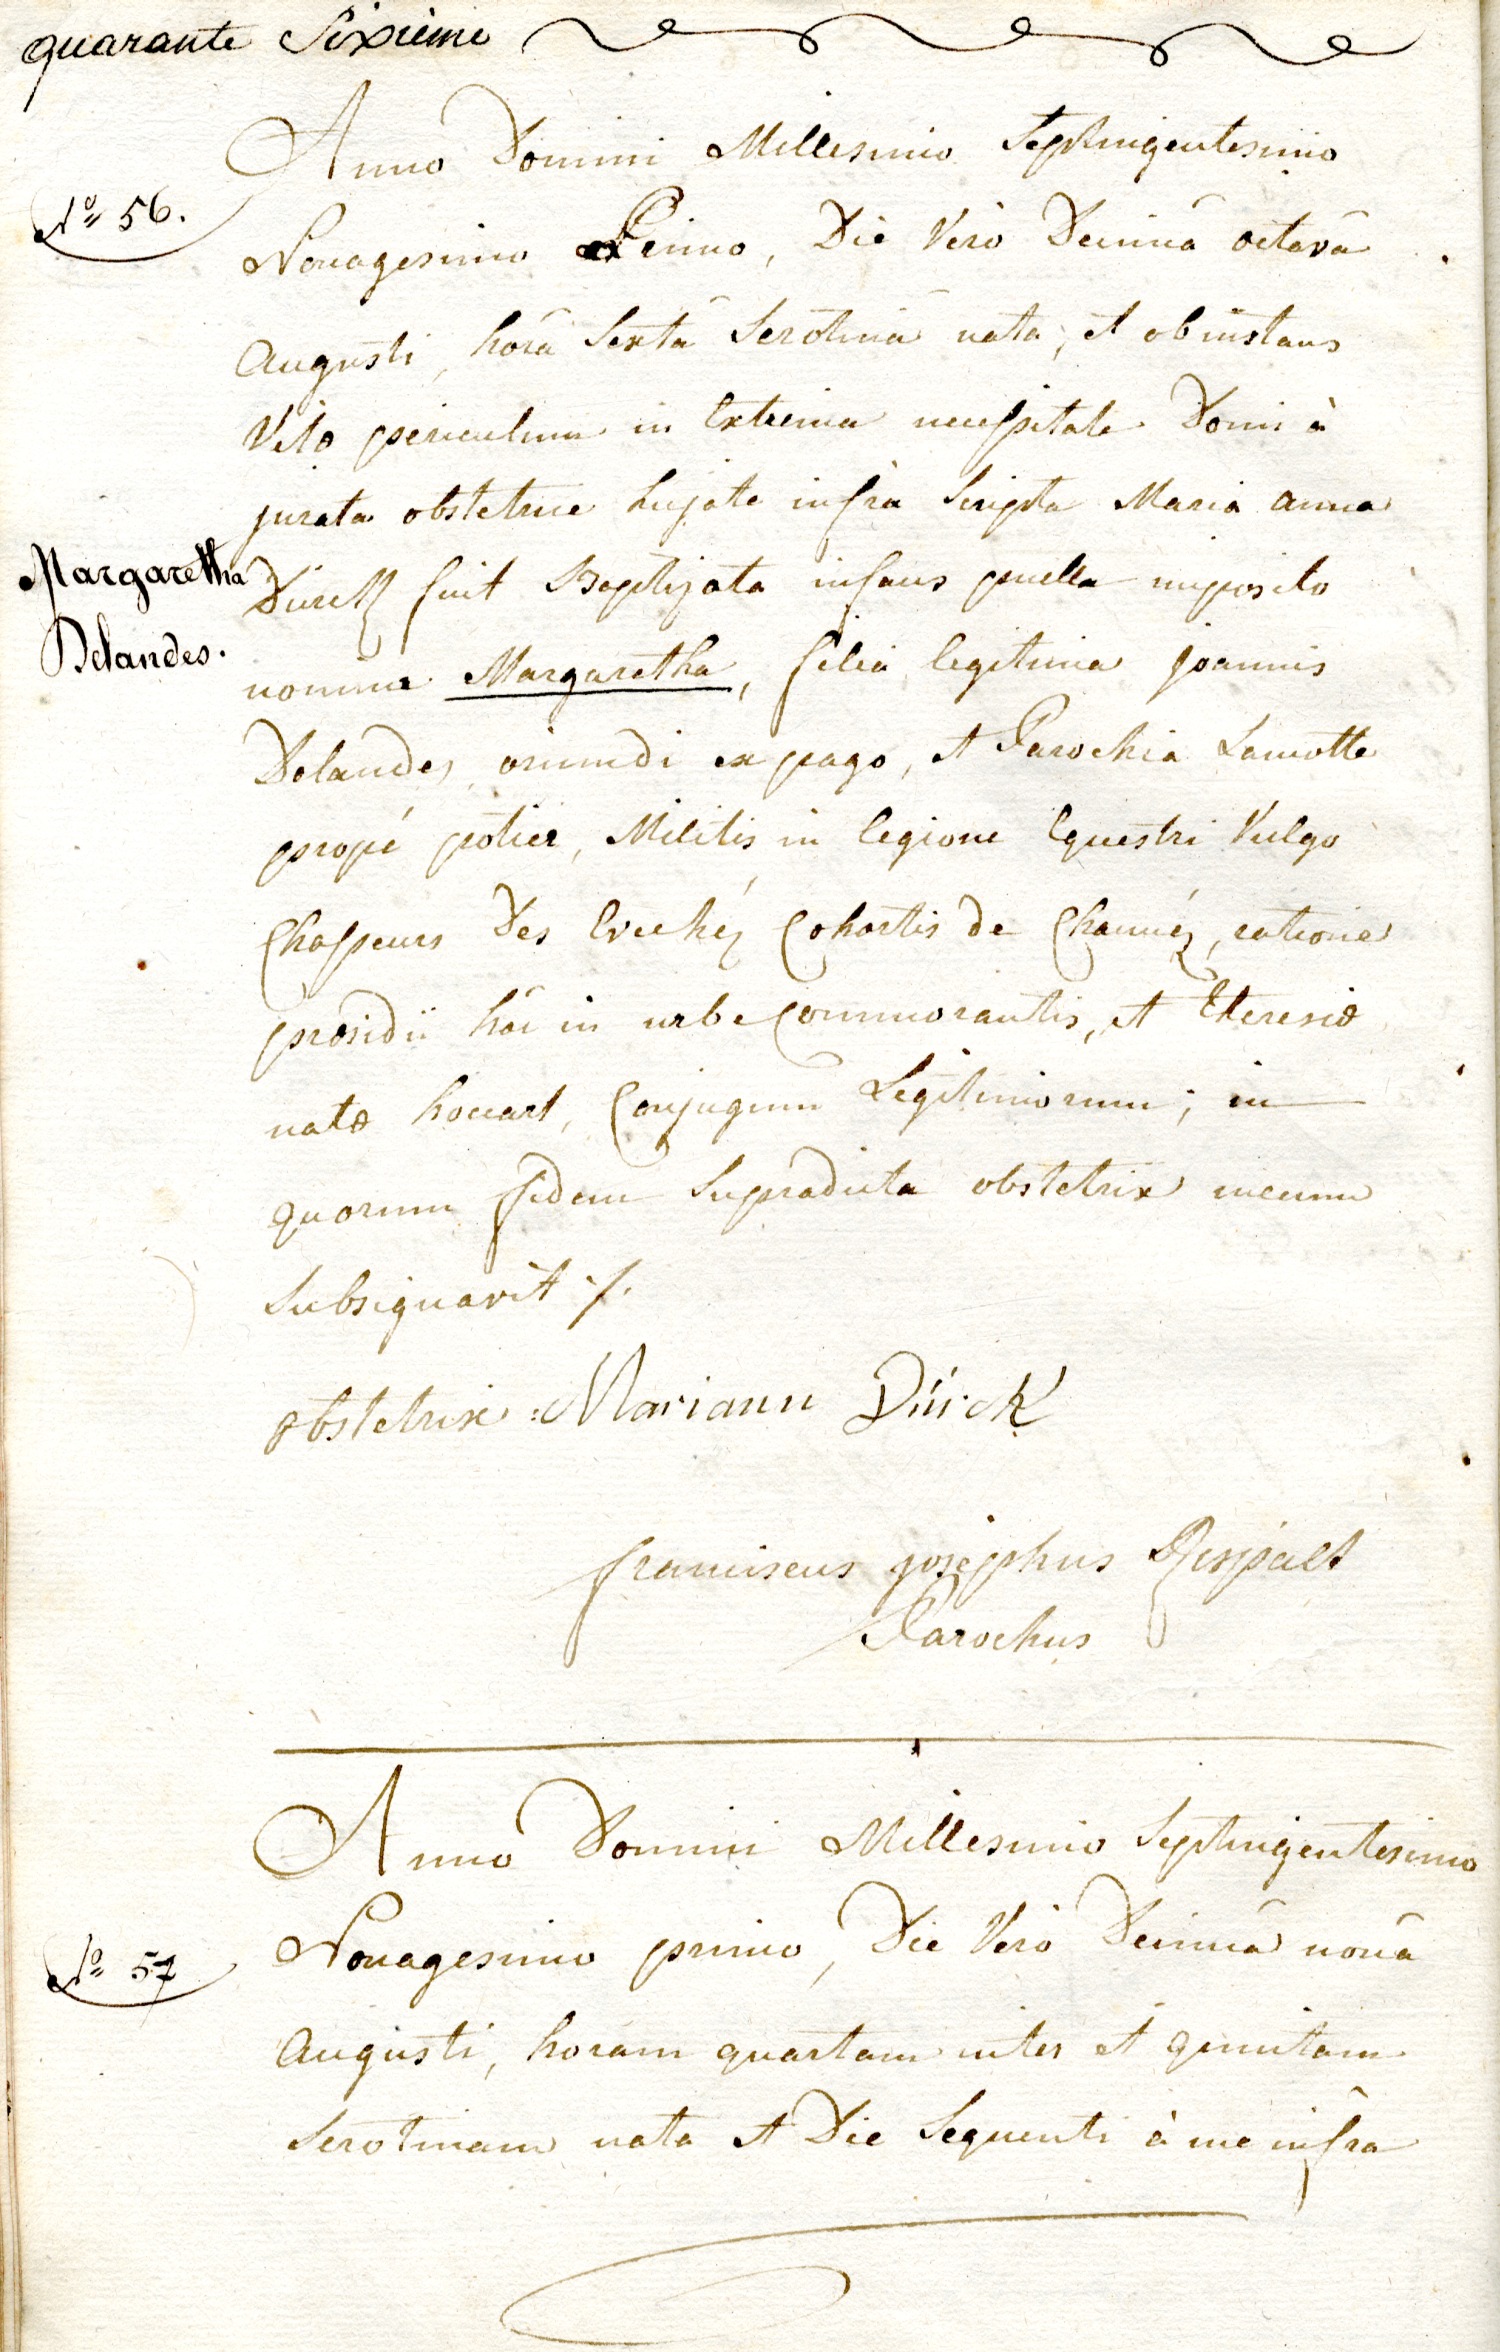 quarante Sixième
Anno Domini Millesimo Septingentesimo
N.o 56.
Nonagesimo Primo, Die Verò Decimâ octavâ
Augusti, horâ Sextâ Serotinâ nata, et ob instans
Vitæ periculum in Extrema necessitate Domi à
jurata obstetrice hujate infra Scripta Maria Anna
Margaretha
Delandes.
Dürck fuit Baptizata infans puella imposito
nomine Margaretha, filia legitima Joannis
Delandes, oriundi ex pago, et Parochia Lamotte
propé potier, Militis in legione Equestri Vulgo
Chasseurs Des Evechéz Cohortis de
præsidii hâc in urbe Commorantis, et Theresiæ
natæ Conjugum Legitimorum; in
quorum fidem Supradicta obstetrix mecum
Subsignavit ./.
obstetrix: Mariann Dürck
franciscus josephus
Parochus
Anno Domini Millesimo Septingentesimo
N.o 57
Nonagesimo primo, Die Verò Decimâ nonâ
Augusti, horam quartam inter et quintam
Serotinam nata et Die Sequenti à me infra